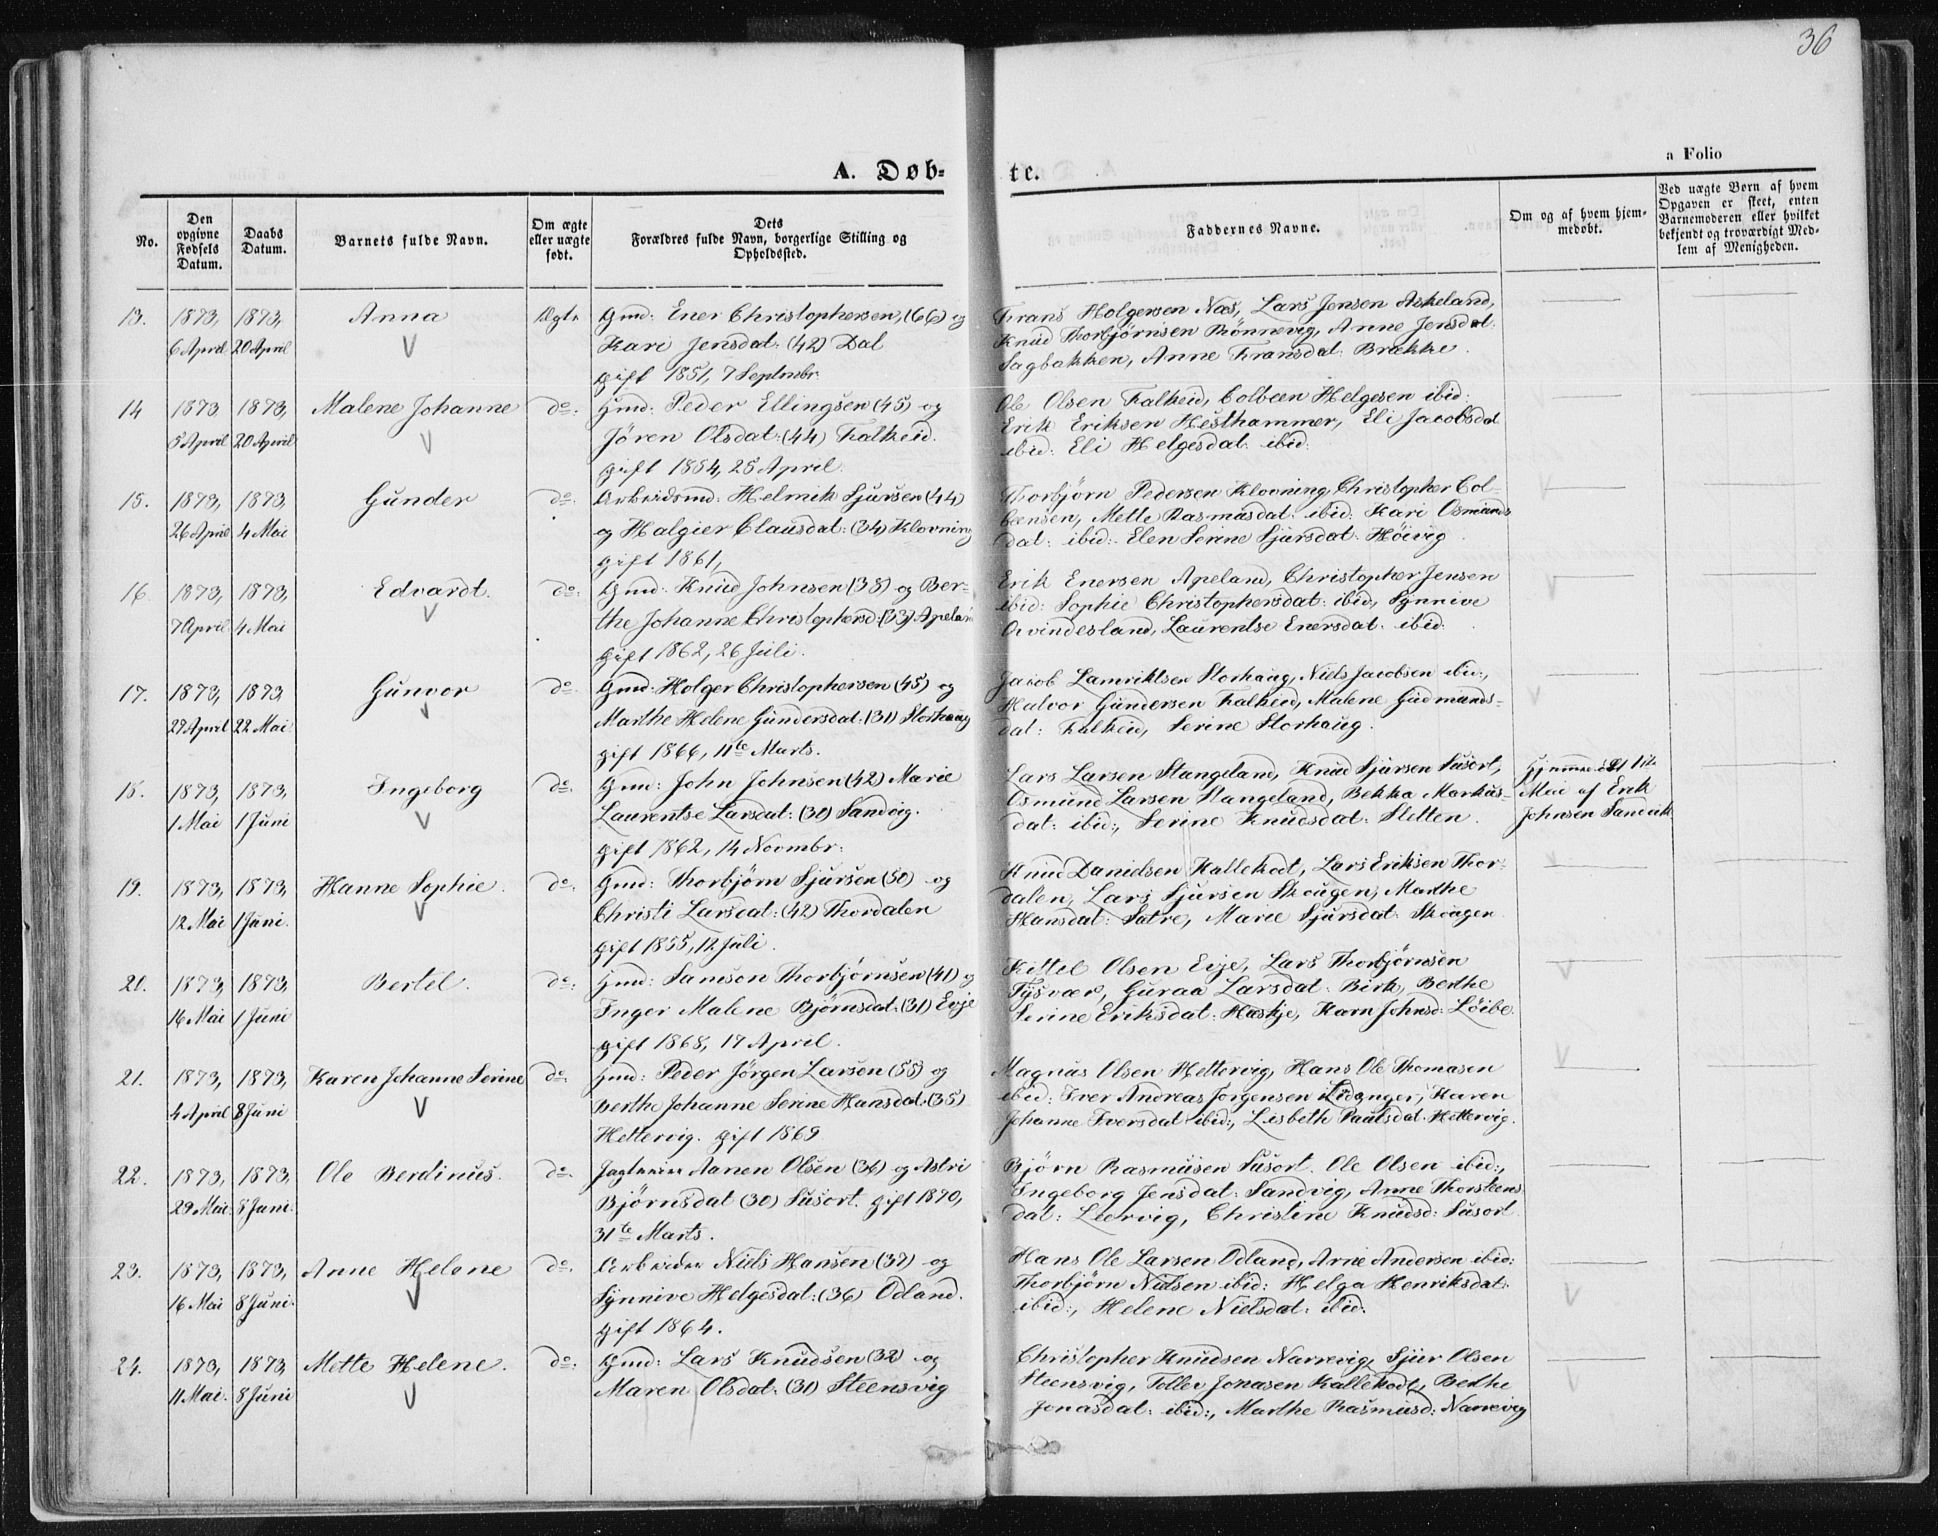 36
a Folio
A. Døb-
te.
No.
Den opgivne Fødsels Datum.
Daabs Datum.
Barnets fulde Navn.
Om ægte eller uægte født.
Dets Forældres fulde Navn, borgerlige Stilling og Opholdssted.
Faddernes Navne.
Om og af hvem hjemmedøbt.
Ved uægte Børn af hvem Opgaven er skeet, enten Barnemoderen eller hvilket bekjendt og troværdigt Medlem af Menigheden.
13. 1873, 6 April 1873, 20 April Anna Ægte
Gmd: Ener Christophersen, (66) og
Kari Jensdat: (42) Dal
gift 1851, 7 Septmbr.
Frans Holgersen Næs, Lars Jensen Askeland,
Knud Thorbjørnsen Rønnevig, Anne Jensdat:
Sagbakken, Anne Fransdat: Brække.
14 1873 5 April 1873, 20 April Malene Johanne do:
Gmd: Peder Ellingsen (45) og
Jøren Olsdat: (44) Falkeid.
gift 1854, 25 April.
Ole Olsen Falkeid, Colbeen Helgesen ibid:
Erik Eriksen Hesthammer, Eli Jacobsdat
ibid: Eli Helgesdat: ibid:
15. 1873, 26 April 1873, 4 Mai Gunder do:
Arbeidsmd: Helmik Sjursen (44)
og Halgier Clausdat: (34) Klovning
gift 1861,
Thorbjørn Pedersen Klovning, Christopher Col-
beensen, Mette Rasmusdat: ibid: Kari Osmunds
dat: ibid: Elen Serine Sjursdat: Høivig.
16. 1873, 7 April 1873, 4 Mai Edvardt. do:
Gmd: Knud Johnsen (38) og Ber-
the Johanne Christophersd: (33) Apeland
gift 1862, 26 Juli.
Erik Enersen Apeland, Christopher Jensen
ibid: Sophie Christophersdat: ibid, Synnive
Øvindesland, Laurentse Enersdat: ibid:
17. 1873, 27 April 1873 22 Mai Gunvor do:
Gmd: Holger Christophersen (45) og
Marthe Helene Gundersdat: (31) Storhaug
gift 1866, 11te Marts.
Jacob Lamriktsen Storhaug, Niels Jacobsen ibid:,
Halvor Gundersen Falkeid, Malene Gudmunds-
dat: Falkeid, Serine Storhaug.
18. 1873, 1 Mai 1873, 1 Juni Ingeborg do:
Gmd: John Johnsen (42) Marie
Laurentse Larsdat: (30) Sandvig.
gift 1862, 14 Novmbr:
Lars Larsen Stangeland, Knud Sjursen Susort,
Osmund Larsen Stangeland, Bekka Markus-
dat: ibid:, Serine Knudsdat: Sletten.
Mai af Erik
Johnsen Sandvik
19. 1873, 12 Mai 1873, 1 Juni. Hanne Sophie. do:
Gmd: Thorbjørn Sjursen (50) og
Christi Larsdat: (42) Thordalen
gift 1855, 12 Juli.
Knud Danielsen Kallekodt, Lars Eriksen Thor-
dalen, Lars Sjursen Skougen, Marthe
Hansdat: Sætre, Marie Sjursdat: Skougen
20. 1873, 16 Mai 1873, 1 Juni Bertel. do:
Gmd: Samson Thorbjørnsen (41) og
Inger Malene Bjørnsdat: (31) Evje
gift 1868, 17 April.
Kittel Olsen Evje, Lars Thorbjørnsen
Tysvær, Guraa Larsdat: Birk, Berthe
Serine Eriksdat: Haskje, Karn Johnsd: Løibe.
21. 1873, 4 April 1873, 8 Juni Karen Johanne Serine do:
Gmd: Peder Jørgen Larsen (55) og
Berthe Johanne Serine Hansdat: (35)
Hettervig. gift 1869
Magnus Olsen Hettervig, Hans Ole Thomasen
ibid: Iver Andreas Jørgensen Lidanger, Karen
Johanne Iversdat ibid:, Lisbeth Paulsdat: Hettervig.
22. 1873, 29 Mai 1873, 8 Juni. Ole Berdinus. do:
Aanen Olsen (36) og Astri
Bjørnsdat (30) Susort. gift 1870,
31te Marts.
Bjørn Rasmusen Susort. Ole Olsen ibid:,
Ingeborg Jensdat: Sandvig, Anne Thorsteens
dat: Leervig, Christine Knudsd: Susort.
23. 1873, 16 Mai 1873, 8 Juni. Anne Helene do:
Arbeider Niels Hansen (37) og
Synnive Helgesdat: (36) Odland.
gift 1864.
Hans Ole Larsen Odland, Arne Andersen ibid:
Thorbjørn Nielsen ibid: Helga Henriksdat:
ibid:, Helene Nielsdat: ibid:
24. 1873, 11 Mai. 1873 8 Juni Mette Helene. do:
Gmd: Lars Knudsen (32) og
Maren Olsdat: (31) Steensvig
Christopher Knudsen Narrevig, Sjur Olsen
Steensvig, Tollev Jonasen Kallekodt, Berthe
Jonasdat: ibid:, Marthe Rasmusd: Narrevig